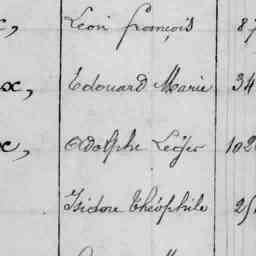 Léon françois 87
x, Edouard Marie 34
x, Adolphe Léger 102
Isidore théophile 25